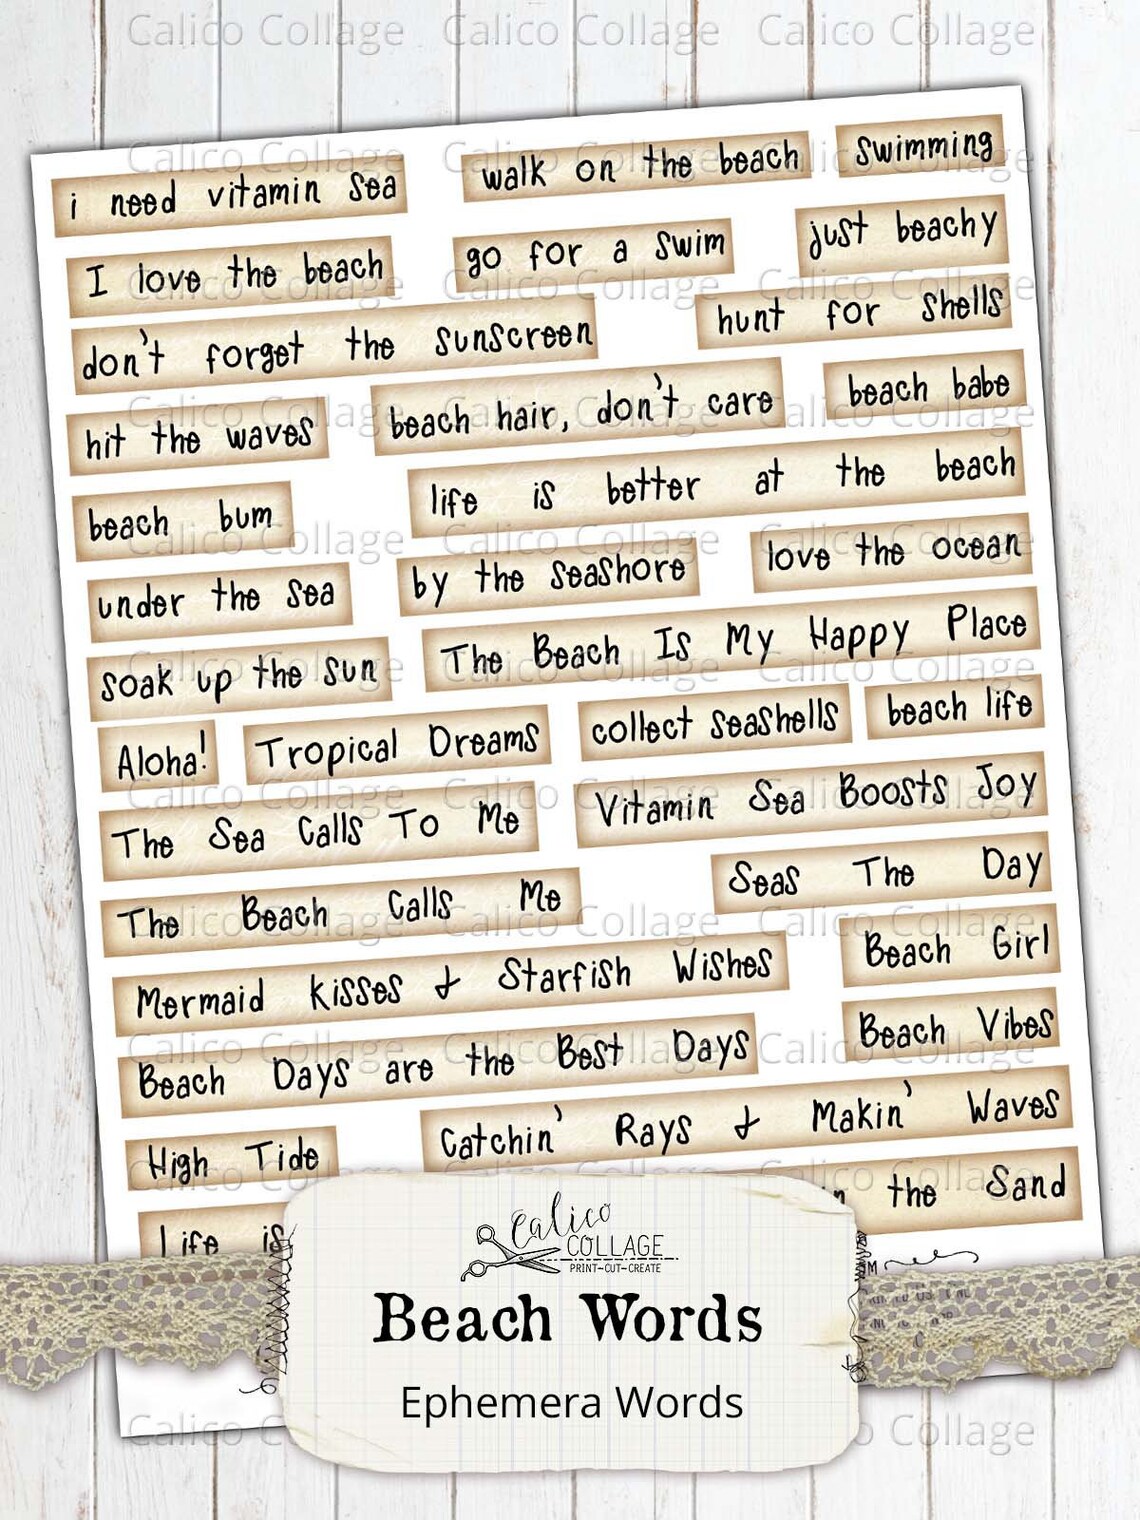 Calico Collage Calico Collage Calico Collage
i need vitamin sea walk on the beach swimming
I love the beach go for a swim just beachy
don't forget the sunscreen hunt for shells
hit the waves beach hair, don't care beach babe
beach bum life is better at the beach
under the sea by the seashore love the ocean
soak up the sun The Beach Is My Happy Place
Aloha! Tropical Dreams collect seashells beach life
The Sea Calls To Me Vitamin Sea Boosts Joy
The Beach Calls Me Seas The Day
Mermaid Kisses & Starfish Wishes Beach Girl
Beach Days are the Best Days Beach Vibes
High Tide Catchin' Rays & Makin' Waves
Life is the Sand
Calico
COLLAGE
PRINT-CUT-CREATE
Beach Words
Ephemera Words